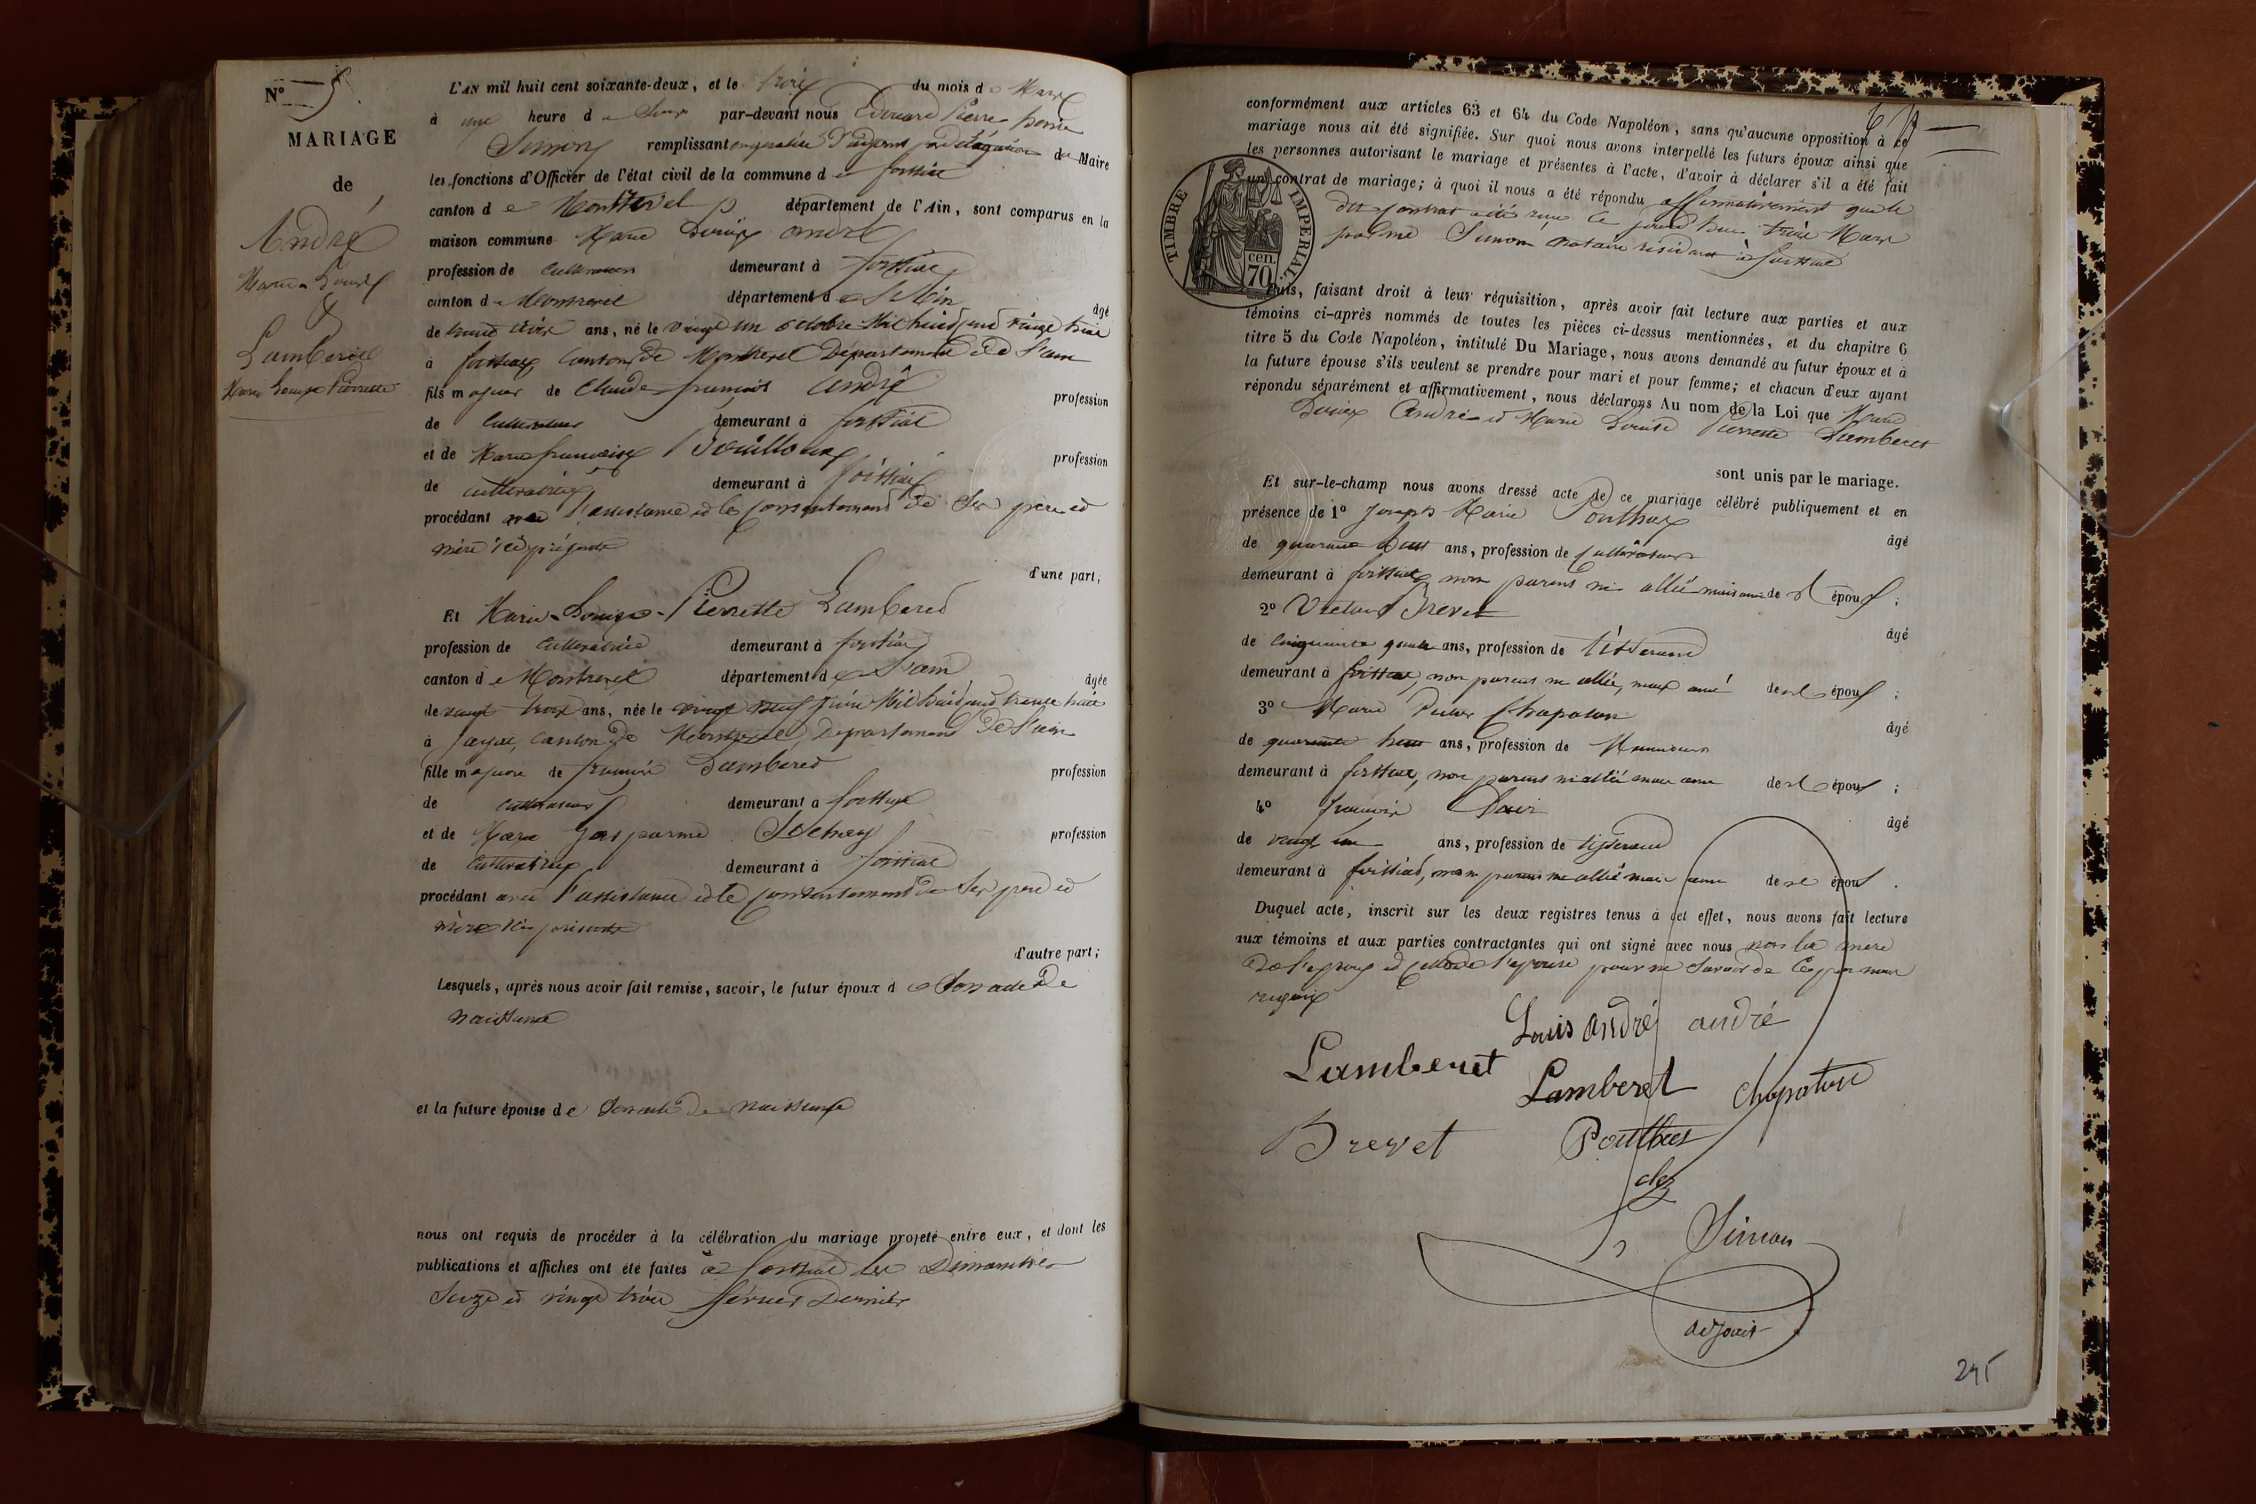 N° 5
MARIAGE
de
André
Marie Louis
&
Lamberet
Marie Louise Pierrette
L'AN mil huit cent soixante-deux, et le trois du mois de Mars
à une heure du Soir par-devant nous Edouard Pierre
Simon remplissant en qualité d'adjoint par délégation du Maire
les fonctions d'Officier de l'état civil de la commune de foissiat
canton de Montrevel département de l'Ain, sont comparus en la
maison commune Marie Louis André
profession de Cultivateur demeurant à foissiat
canton de Montrevel département de l'Ain âgé
de trente huit ans, né le vingt un octobre Mil huit cent vingt trois
à foissiat Canton de Montrevel Département de l'ain
fils majeur de Claude françois André profession
de Cultivateur demeurant à foissiat
et de Marie françoise profession
de cultivatrice demeurant à foissiat
procédant avec l'assistance et le consentement de Ses père et
mère ici présents
d'une part;
Et Marie-Louise-Pierrette Lamberet
profession de Cultivatrice demeurant à foissiat
canton de Montrevel département de l'ain âgée
de vingt trois ans, née le vingt neuf Mil huit cent trente huit
à Jayat, Canton de Montrevel, Département de l'ain
fille majeure de françois Lamberet profession
de cultivateur demeurant à foissiat
et de Marie profession
de Cultivatrice demeurant à foissiat
procédant avec l'assistance et le consentement de Ses père et
mère ici présents
d'autre part;
Lesquels, après nous avoir fait remise, savoir, le futur époux de Son acte de
naissance
et la future épouse de Son acte de naissance
nous ont requis de procéder à la célébration du mariage projeté entre eux, et dont les
publications et affiches ont été faites à foissiat les Dimanches
Seize et vingt trois février Dernier
conformément aux articles 63 et 64 du Code Napoléon, sans qu'aucune opposition à ce
mariage nous ait été signifiée. Sur quoi nous avons interpellé les futurs époux ainsi que
les personnes autorisant le mariage et présentes à l'acte, d'avoir à déclarer s'il a été fait
un contrat de mariage; à quoi il nous a été répondu affirmativement que le
dit contrat a été reçu ce jourd'hui trois Mars
par me Simon notaire résidant à foissiat
TIMBRE IMPERIAL.
cen.
70
Puis, faisant droit à leur réquisition, après avoir fait lecture aux parties et aux
témoins ci-après nommés de toutes les pièces ci-dessus mentionnées, et du chapitre 6
titre 5 du Code Napoléon, intitulé Du Mariage, nous avons demandé au futur époux et à
la future épouse s'ils veulent se prendre pour mari et pour femme; et chacun d'eux ayant
répondu séparément et affirmativement, nous déclarons Au nom de la Loi que Marie
Louis André et Marie Louise Pierrette Lamberet
sont unis par le mariage.
Et sur-le-champ nous avons dressé acte de ce mariage célébré publiquement et en
présence de 1° Joseph Marie Pouthier âgé
de quarante huit ans, profession de Cultivateur
demeurant à foissiat, non parent ni allié mais ami de l'époux;
2° Victor Brevet âgé
de cinquante quatre ans, profession de tisserand
demeurant à foissiat, non parent ni allié, mais ami de l'époux;
3° Marie Chapaton âgé
de quarante huit ans, profession de
demeurant à foissiat, non parent ni allié mais ami de l'époux;
4° françois âgé
de vingt un ans, profession de tisserand
demeurant à foissiat, non parent ni allié mais ami de l'époux.
Duquel acte, inscrit sur les deux registres tenus à cet effet, nous avons fait lecture
aux témoins et aux parties contractantes qui ont signé avec nous non la mère
de l'époux et celle de l'épouse pour ne savoir de ce par nous
requis
Louis andré andré
Lamberet
Lamberet Chapaton
Brevet Pouthier
Simon
adjoint
245